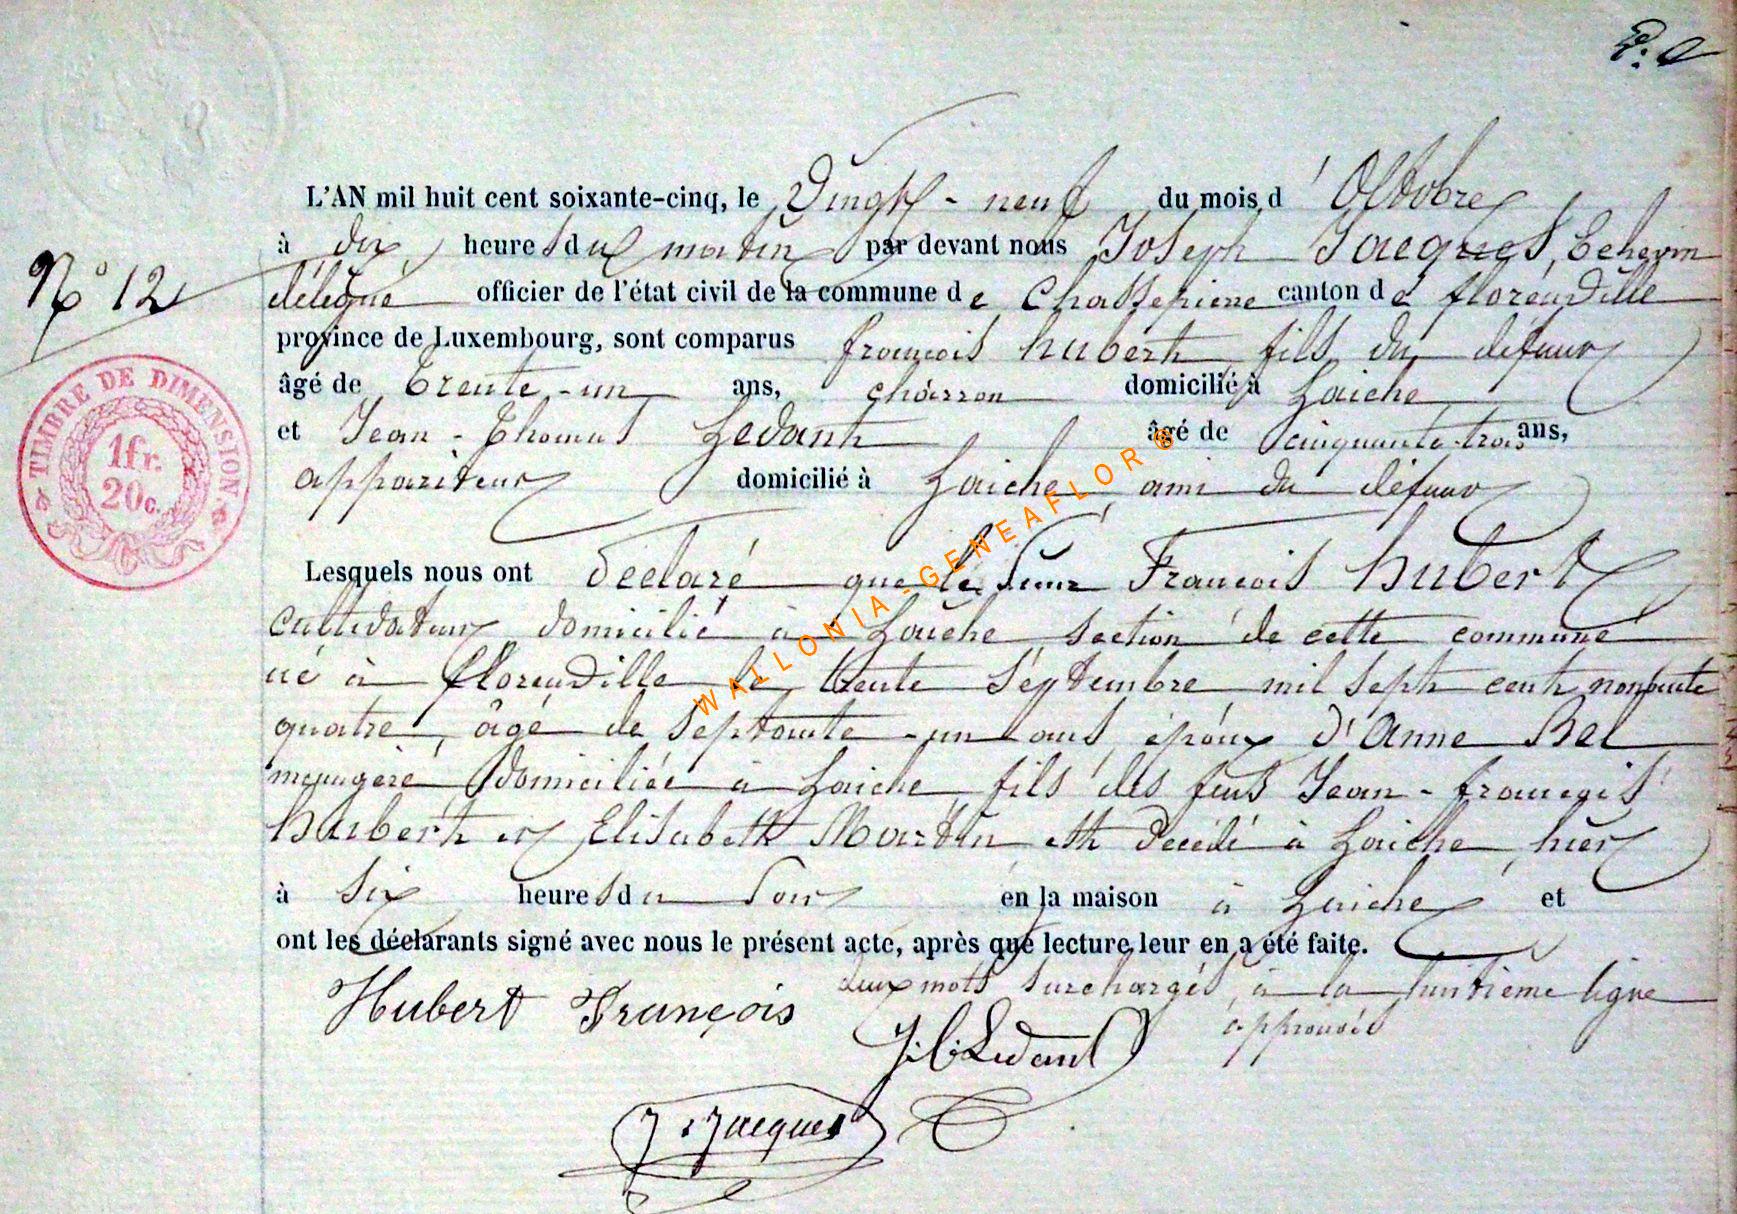 L'AN mil huit cent soixante-cinq, le Vingt-neuf du mois d'Octobre
à dix heures du matin par devant nous Joseph Jacques, Echevin
N° 12
délégué officier de l'état civil de la commune de Chassepierre canton de florenville
province de Luxembourg, sont comparus françois hubert fils du défunt
âgé de trente-un ans, charron domicilié à Laiche
et Jean-Thomas Ledant âgé de cinquante-trois ans,
appariteur domicilié à Laiche, ami du défunt
TIMBRE DE DIMENSION.
1fr.
20c.
Lesquels nous ont déclaré que le sieur François hubert
cultivateur domicilié à Laiche section de cette commune
né à florenville le trente septembre mil sept cent nonante
quatre, âgé de septante-un ans, époux d'Anne Bel
menagère domiciliée à Laiche, fils des feus Jean-françois
hubert et Elisabeth Martin est décédé à Laiche, hier
à six heures du soir en la maison à Laiche et
ont les déclarants signé avec nous le présent acte, après que lecture leur en a été faite.
deux mots surchargés, à la huitième ligne
approuvés
Hubert François
J. Ledant
J. Jacques
WALLONIA-GENEAFLOR®